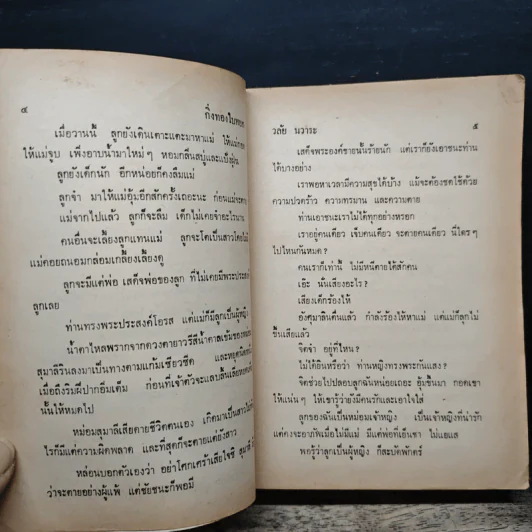 ๔
กิ่งทองใบหยก
เมื่อวานนี้ ลูกยังเดินเตาะแตะมาหาแม่ ให้แม่กอด
ให้แม่จูบ เพิ่งอาบน้ำมาใหม่ๆ หอมกลิ่นสบู่และแป้งฝุ่น
ลูกยังเด็กนัก อีกหน่อยก็คงลืมแม่
ลูกจ๋า มาให้แม่อุ้มอีกสักครั้งเถอะนะ ก่อนแม่จะตาย
แม่จากไปแล้ว ลูกก็จะลืม เด็กไม่เคยจำอะไรนาน
คนอื่นจะเลี้ยงลูกแทนแม่ ลูกจะโตเป็นสาวโดยไม่มี
แม่คอยถนอมกล่อมเกลี้ยงเลี้ยงดู
ลูกจะมีแต่พ่อ เสด็จพ่อของลูก ที่ไม่เคยมีพระประสงค์
ลูกเลย
ท่านทรงพระประสงค์โอรส แต่แม่ก็มีลูกเป็นผู้หญิง
น้ำตาไหลพรากจากดวงตายาวรีสีน้ำตาลเข้มของหม่อม
สุมาลีรินลงมาเป็นทางตามแก้มเซียวซีด และหยุด
เมื่อถึงริมฝีปากอิ่มเต็ม ก่อนที่เจ้าตัวจะแลบลิ้นเลีย
นั้นให้หมดไป
หม่อมสุมาลีเสียดายชีวิตตนเอง เกิดมาเป็นสาว
ไรก็มีแต่ความผิดพลาด และที่สุดก็จะตายแต่ยังสาว
หล่อนบอกตัวเองว่า อย่าโศกเศร้าเสียใจซิ สุมาลี
ว่าจะตายอย่างผู้แพ้ แต่ชัยชนะก็พอมี
วลัย นวาระ
๕
เสด็จพระองค์ชายนั้นร้ายนัก แต่เราก็ยังเอาชนะท่าน
ได้บางอย่าง
เราพอหาเวลามีความสุขได้บ้าง แม้จะต้องชดใช้ด้วย
ความปวดร้าว ความทรมาน และความตาย
ท่านเอาชนะเราไม่ได้ทุกอย่างหรอก
เราอยู่คนเดียว เจ็บคนเดียว จะตายคนเดียว นี่ใครๆ
ไปไหนกันหมด?
คนเราก็เท่านี้ ไม่มีหนีตายได้สักคน
เอ๊ะ นั่นเสียงอะไร?
เสียงเด็กร้องไห้
ยังสุมาลินตื่นแล้ว กำลังร้องไห้หาแม่ แต่แม่ก็ลุกไม่
ขึ้นเสียแล้ว
จิตจ๋า อยู่ที่ไหน?
ไม่ได้ยินหรือว่า ท่านหญิงทรงพระกันแสง?
จิตช่วยไปปลอบลูกฉันหน่อยเถอะ อุ้มขึ้นมา กอดเขา
ให้แน่นๆ ให้เขารู้ว่ายังมีคนรักและเอาใจใส่
ลูกของฉันเป็นหม่อมเจ้าหญิง เป็นเจ้าหญิงที่น่ารัก
แต่คงจะอาภัพเมื่อไม่มีแม่ มีแต่พ่อที่เย็นชา ไม่แยแส
พอรู้ว่าลูกเป็นผู้หญิง ก็สะบัดพักตร์